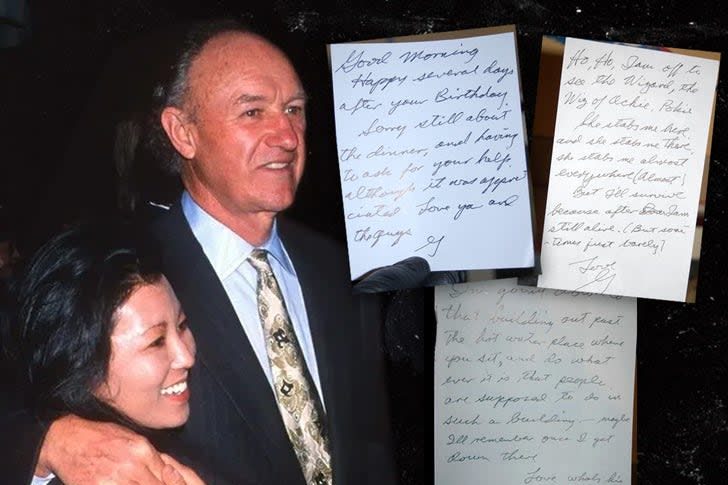 Good Morning
Happy several days
after your Birthday
Sorry still about
the dinner, and having
to ask for your help,
although it was appre
ciated Love ya and
the guys
G
Ho, Ho, I am off to
see the Wizard, the
Wiz of Achie. Pokie
She stabs me here,
and she stabs me there,
she stabs me almost
everywhere (almost!)
But I'll survive
because after I am
still alive. (But some
times just barely)
Love
G
I'm going
that building out past
the hot water place where
you sit, and do what
ever it is that people
are supposed to do in
such a building - maybe
I'll remember once I get
down there
Love whats his